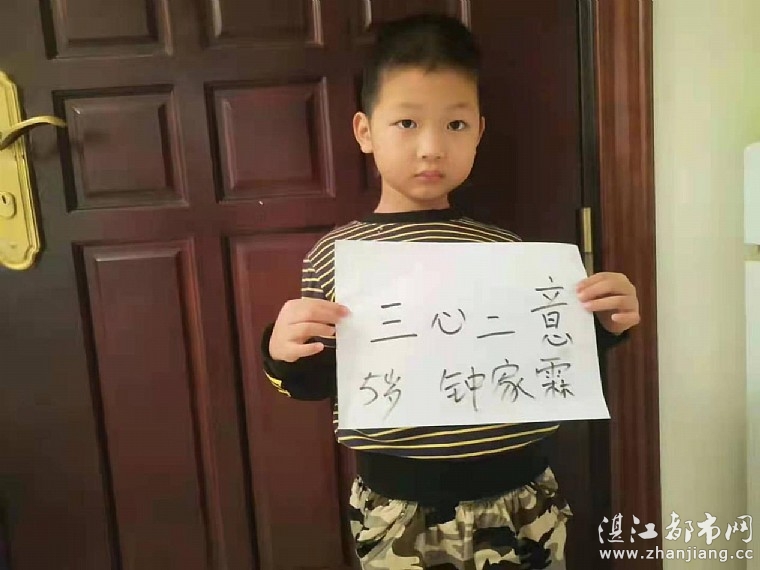 三心二意
5岁 钟家霖
湛江都市网
www.zhanjiang.cc